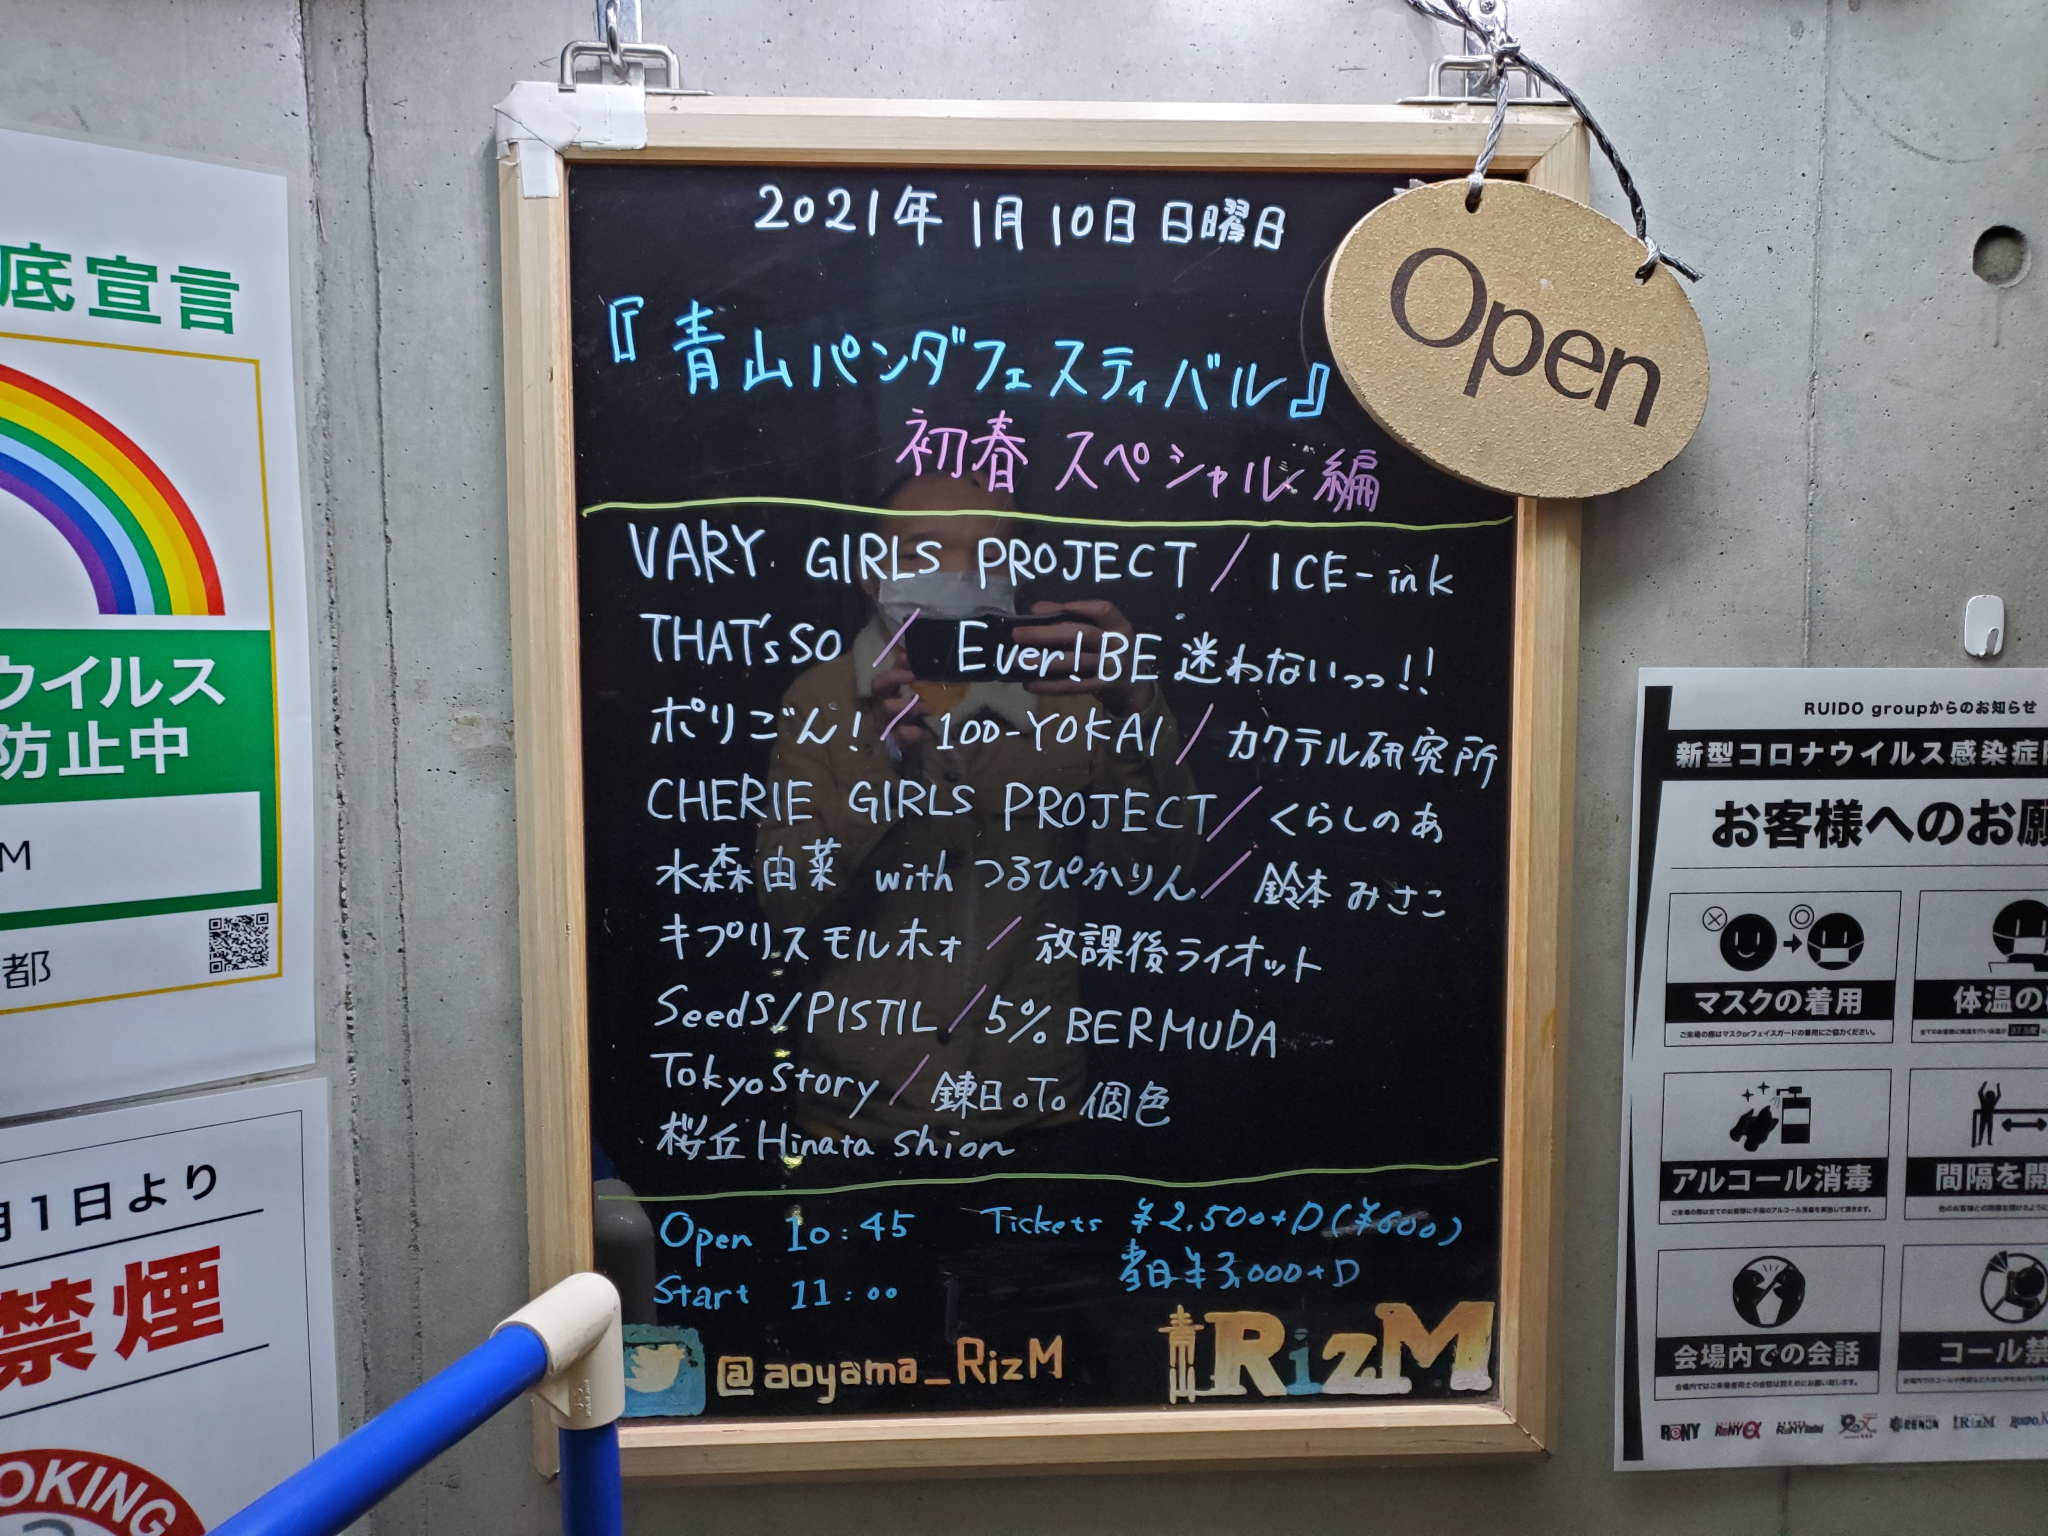 2021年 1月 10日 日曜日
『青山パンダフェスティバル』
初春 スペシャル編
Open
VARY GIRLS PROJECT / ICE-ink
THAT'sSO / Ever!BE 迷わないっっ!!
ポリごん! / 100-YOKAI / カクテル研究所
CHERIE GIRLS PROJECT / くらしのあ
水森由菜 with つるぴかりん / 鈴本みさこ
キプリスモルホォ / 放課後ライオット
SeedS/PISTIL / 5% BERMUDA
TokyoStory / 錬日oTo個色
桜丘Hinata Shion
Open 10:45 Tickets ¥2.500+D(¥600)
当日¥3,000+D
Start 11:00
@aoyama_RizM
青山RizM
底宣言
ウイルス
防止中
M
都
月1日より
禁煙
OKING
RUIDO groupからのお知らせ
新型コロナウイルス感染症
お客様へのお願
マスクの着用
ご来場の際はマスクorフェイスガードの着用にご協力ください。
体温の
アルコール消毒
間隔を開
会場内での会話
コール禁
RUNY
RizM